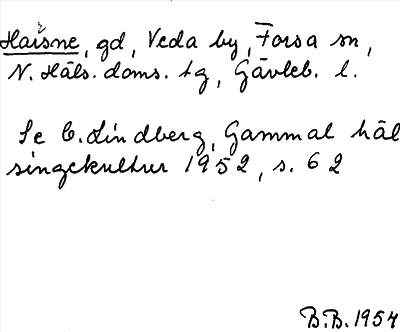 Haišne, gd, Veda by, Forsa sn,
N. Häls. doms. tg, Gävleb. l.
Se C. Lindberg, Gammal häl
singekultur 1952, s. 62
B.B. 1954